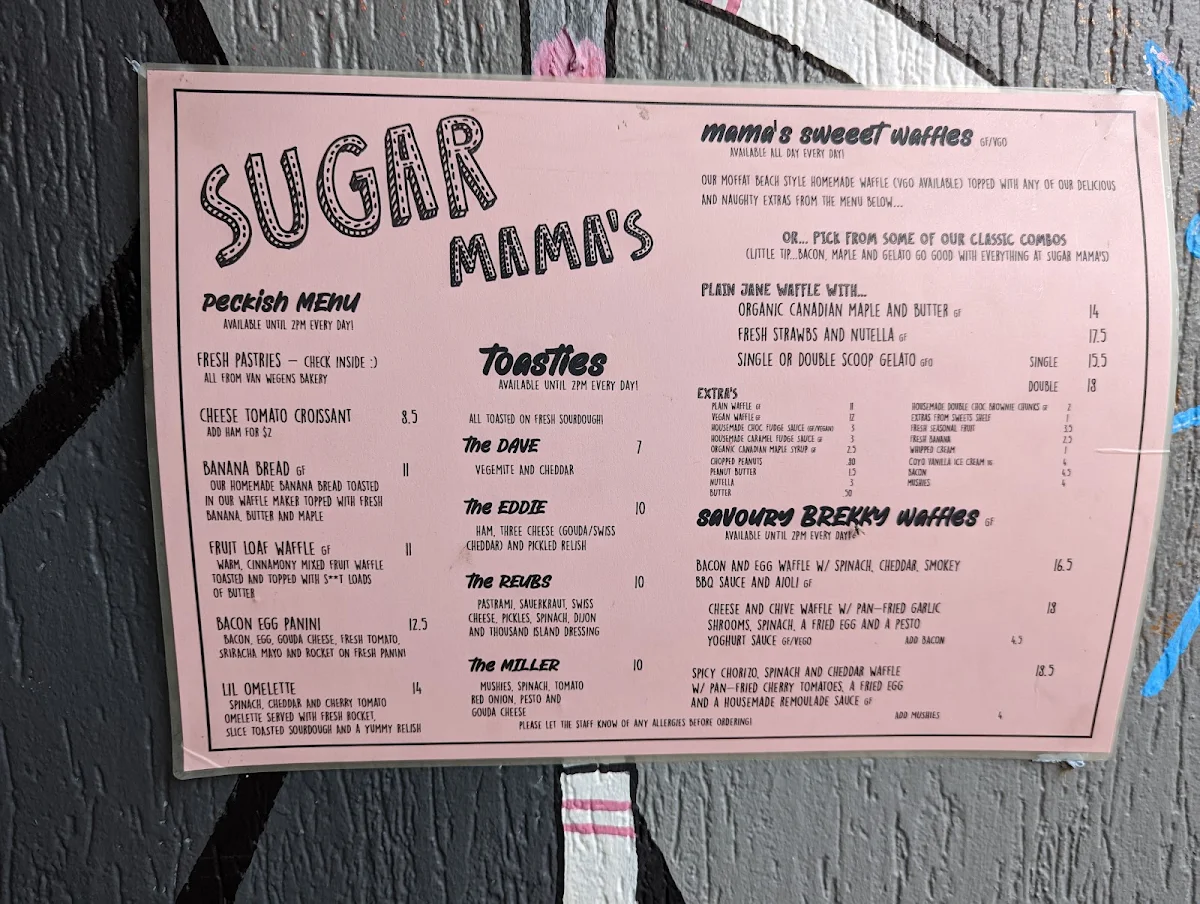 SUGAR
MAMA'S
Peckish MENU
AVAILABLE UNTIL 2PM EVERY DAY!
FRESH PASTRIES – CHECK INSIDE :)
ALL FROM VAN WEGENS BAKERY
CHEESE TOMATO CROISSANT 8.5
ADD HAM FOR $2
BANANA BREAD GF 11
OUR HOMEMADE BANANA BREAD TOASTED
IN OUR WAFFLE MAKER TOPPED WITH FRESH
BANANA, BUTTER AND MAPLE
FRUIT LOAF WAFFLE GF 11
WARM, CINNAMONY MIXED FRUIT WAFFLE
TOASTED AND TOPPED WITH S**T LOADS
OF BUTTER
BACON EGG PANINI 12.5
BACON, EGG, GOUDA CHEESE, FRESH TOMATO,
SRIRACHA MAYO AND ROCKET ON FRESH PANINI
LIL OMELETTE 14
SPINACH, CHEDDAR AND CHERRY TOMATO
OMELETTE SERVED WITH FRESH ROCKET,
SLICE TOASTED SOURDOUGH AND A YUMMY RELISH
Toasties
AVAILABLE UNTIL 2PM EVERY DAY!
ALL TOASTED ON FRESH SOURDOUGH!
The DAVE 7
VEGEMITE AND CHEDDAR
The EDDIE 10
HAM, THREE CHEESE (GOUDA/SWISS
CHEDDAR) AND PICKLED RELISH
The REUBS 10
PASTRAMI, SAUERKRAUT, SWISS
CHEESE, PICKLES, SPINACH, DIJON
AND THOUSAND ISLAND DRESSING
The MILLER 10
MUSHIES, SPINACH, TOMATO
RED ONION, PESTO AND
GOUDA CHEESE
PLEASE LET THE STAFF KNOW OF ANY ALLERGIES BEFORE ORDERING!
mama's sweeet waffles GF/VGO
AVAILABLE ALL DAY EVERY DAY!
OUR MOFFAT BEACH STYLE HOMEMADE WAFFLE (VGO AVAILABLE) TOPPED WITH ANY OF OUR DELICIOUS
AND NAUGHTY EXTRAS FROM THE MENU BELOW...
OR... PICK FROM SOME OF OUR CLASSIC COMBOS
(LITTLE TIP...BACON, MAPLE AND GELATO GO GOOD WITH EVERYTHING AT SUGAR MAMA'S)
PLAIN JANE WAFFLE WITH...
ORGANIC CANADIAN MAPLE AND BUTTER GF 14
FRESH STRAWBS AND NUTELLA GF 17.5
SINGLE OR DOUBLE SCOOP GELATO GFO SINGLE 15.5
DOUBLE 18
EXTRA'S
PLAIN WAFFLE GF 11
VEGAN WAFFLE GF 12
HOUSEMADE CHOC FUDGE SAUCE (GF/VEGAN) 3
HOUSEMADE CARAMEL FUDGE SAUCE GF 3
ORGANIC CANADIAN MAPLE SYRUP GF 2.5
CHOPPED PEANUTS .80
PEANUT BUTTER 1.5
NUTELLA 3
BUTTER .50
HOUSEMADE DOUBLE CHOC BROWNIE CHUNKS GF 2
EXTRAS FROM SWEETS SHELF 1
FRESH SEASONAL FRUIT 3.5
FRESH BANANA 2.5
WHIPPED CREAM 1
COYO VANILLA ICE CREAM VG 4
BACON 4.5
MUSHIES 4
savoury BREKKY waffles GF
AVAILABLE UNTIL 2PM EVERY DAY!
BACON AND EGG WAFFLE W/ SPINACH, CHEDDAR, SMOKEY 16.5
BBQ SAUCE AND AIOLI GF
CHEESE AND CHIVE WAFFLE W/ PAN-FRIED GARLIC 18
SHROOMS, SPINACH, A FRIED EGG AND A PESTO
YOGHURT SAUCE GF/VEGO ADD BACON 4.5
SPICY CHORIZO, SPINACH AND CHEDDAR WAFFLE 18.5
W/ PAN-FRIED CHERRY TOMATOES, A FRIED EGG
AND A HOUSEMADE REMOULADE SAUCE GF
ADD MUSHIES 4